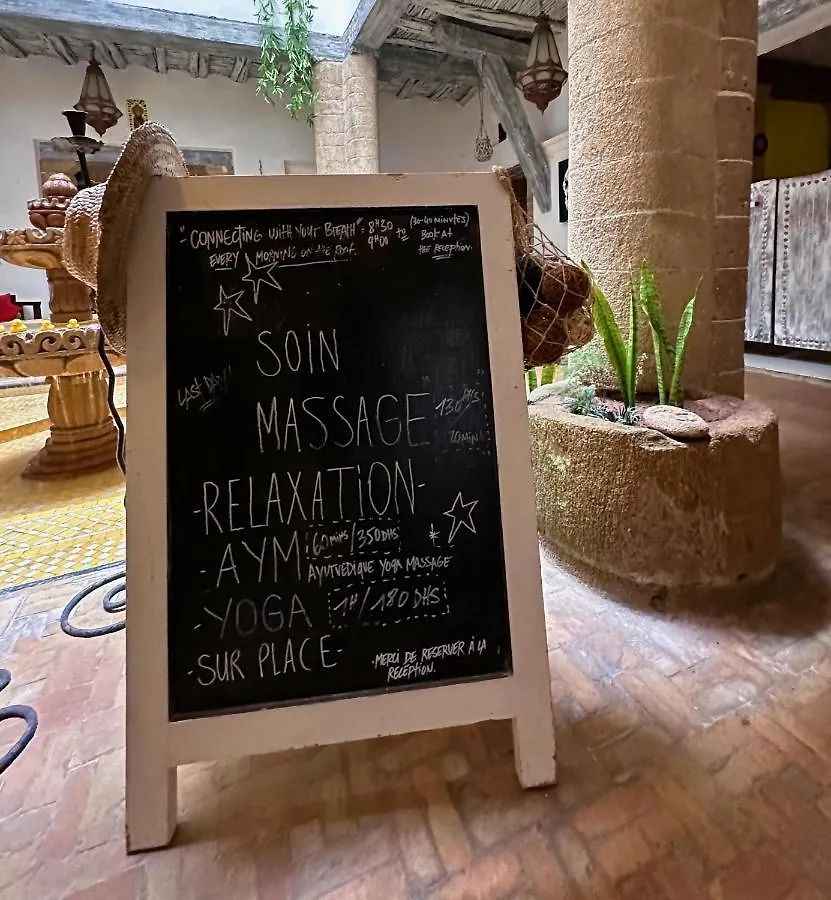 "CONNECTING WITH YOUR BREATH" = 8H30 to 9H00 (30-40 MINUTES)
EVERY MORNING ON THE ROOF. BOOK AT THE RECEPTION.
SOIN
LAST DAY!
MASSAGE 130DHS
20MIN
-RELAXATION-
-AYM 60mins/350DHS
AYURVEDIQUE YOGA MASSAGE
-YOGA 1H/180 DHS
-SUR PLACE-
·MERCI DE RESERVER À LA
RÉCEPTION.